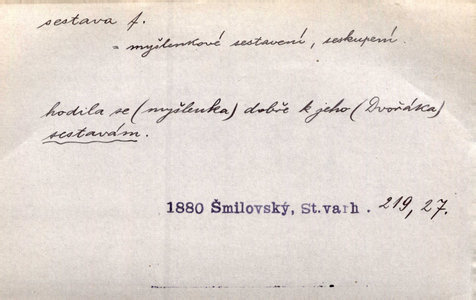 sestava f.
= myšlenkové sestavení, seskupení.
hodila se (myšlenka) dobře k jeho (Dvořáka)
sestavám.
1880 Šmilovský, St.varh. 219, 27.